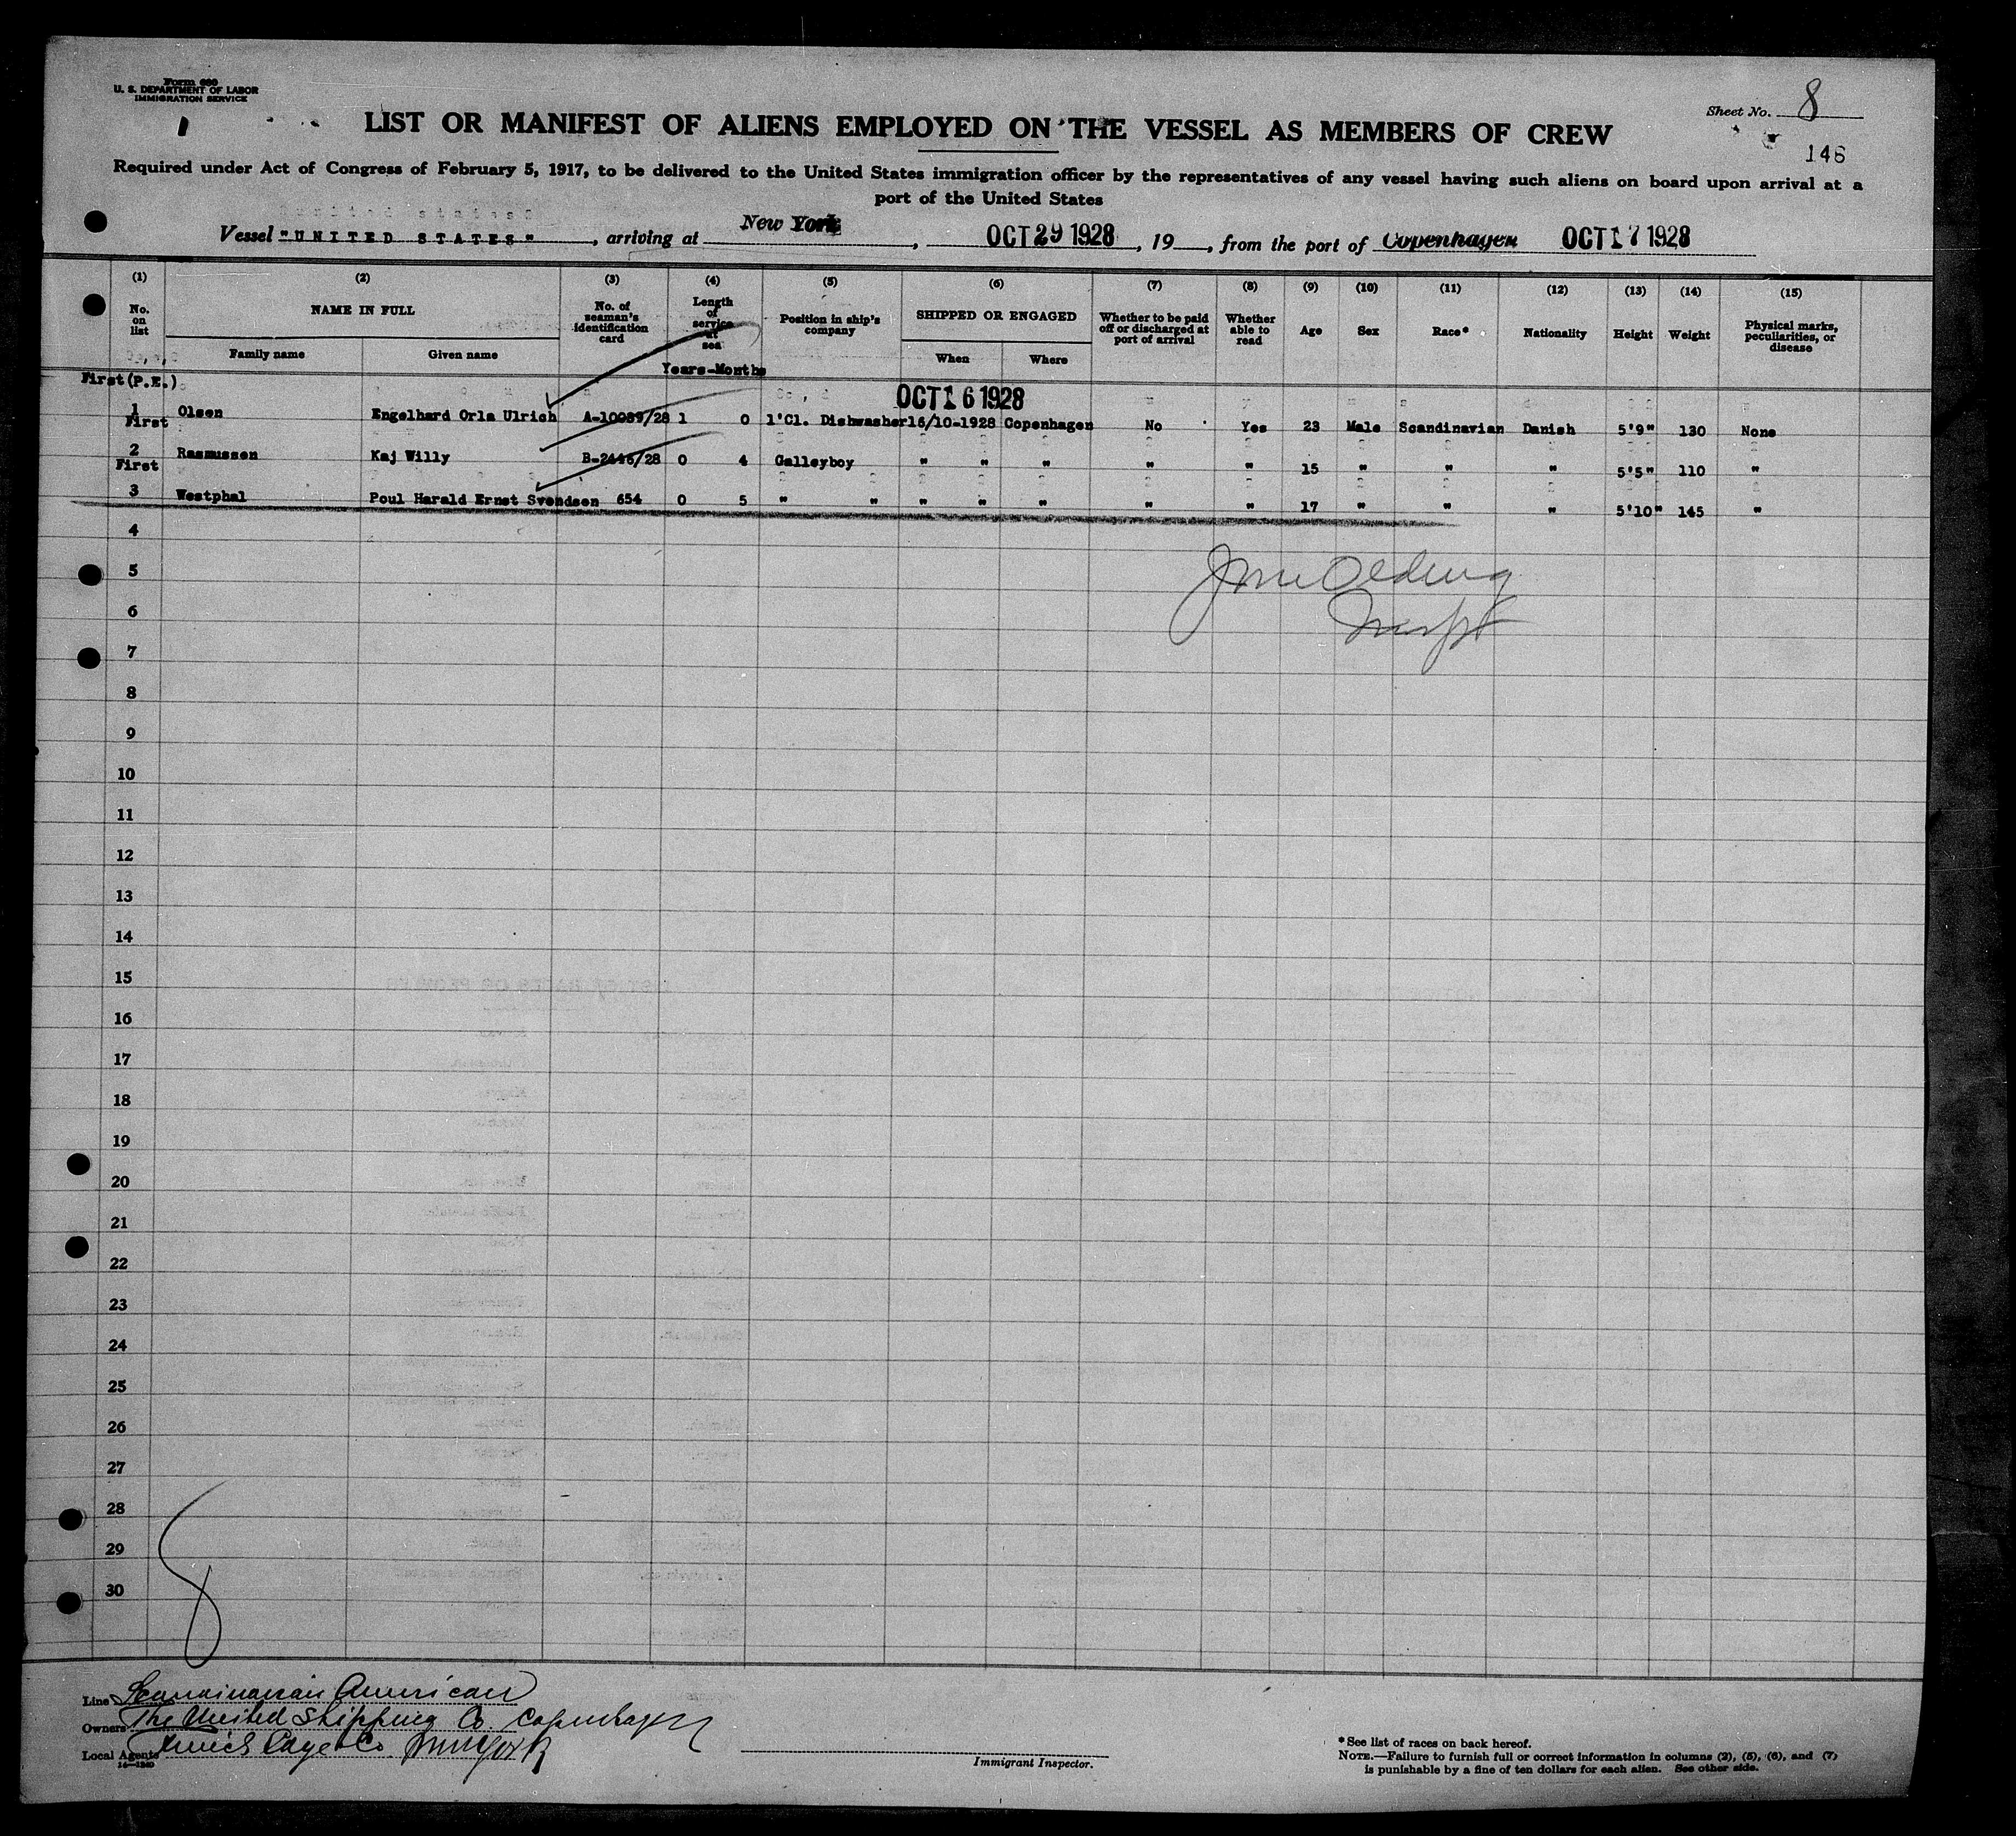 Form 680
U. S. DEPARTMENT OF LABOR
IMMIGRATION SERVICE
Sheet No. 8
LIST OR MANIFEST OF ALIENS EMPLOYED ON THE VESSEL AS MEMBERS OF CREW
146
Required under Act of Congress of February 5, 1917, to be delivered to the United States immigration officer by the representatives of any vessel having such aliens on board upon arrival at a
port of the United States
Vessel "UNITED STATES", arriving at New York, OCT 29 1928, 19, from the port of Copenhagen OCT 17 1928
(1) (2) (3) (4) (5) (6) (7) (8) (9) (10) (11) (12) (13) (14) (15)
No. on list
NAME IN FULL
Family name Given name
No. of seaman's identification card
Length of service at sea
Position in ship's company
SHIPPED OR ENGAGED
When Where
Whether to be paid off or discharged at port of arrival
Whether able to read
Age Sex Race* Nationality Height Weight
Physical marks, peculiarities, or disease
Years-Months
First (P.E.)
OCT 16 1928
1 Olsen Engelhard Orla Ulrich A-10089/28 1 0 1'Cl. Dishwasher 16/10-1928 Copenhagen No Yes 23 Male Scandinavian Danish 5'9" 130 None
First
2 Rasmussen Kaj Willy B-2446/28 0 4 Galleyboy " " " " " 15 " " " 5'5" 110 "
First
3 Westphal Poul Harald Ernst Svendsen 654 0 5 " " " " " " " 17 " " " 5'10" 145 "
4
5
6
7
8
9
10
11
12
13
14
15
16
17
18
19
20
21
22
23
24
25
26
27
28
29
30
8
Line Scandinavian American
Owners The United Shipping Co. Copenhagen
Local Agents New York
14—1240
Immigrant Inspector.
* See list of races on back hereof.
NOTE.—Failure to furnish full or correct information in columns (2), (5), (6), and (7)
is punishable by a fine of ten dollars for each alien. See other side.